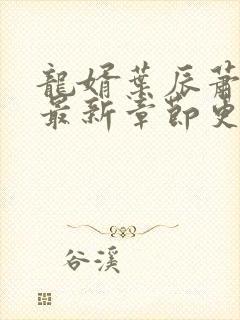 龍婿葉辰蕭
最新章節更
谷溪